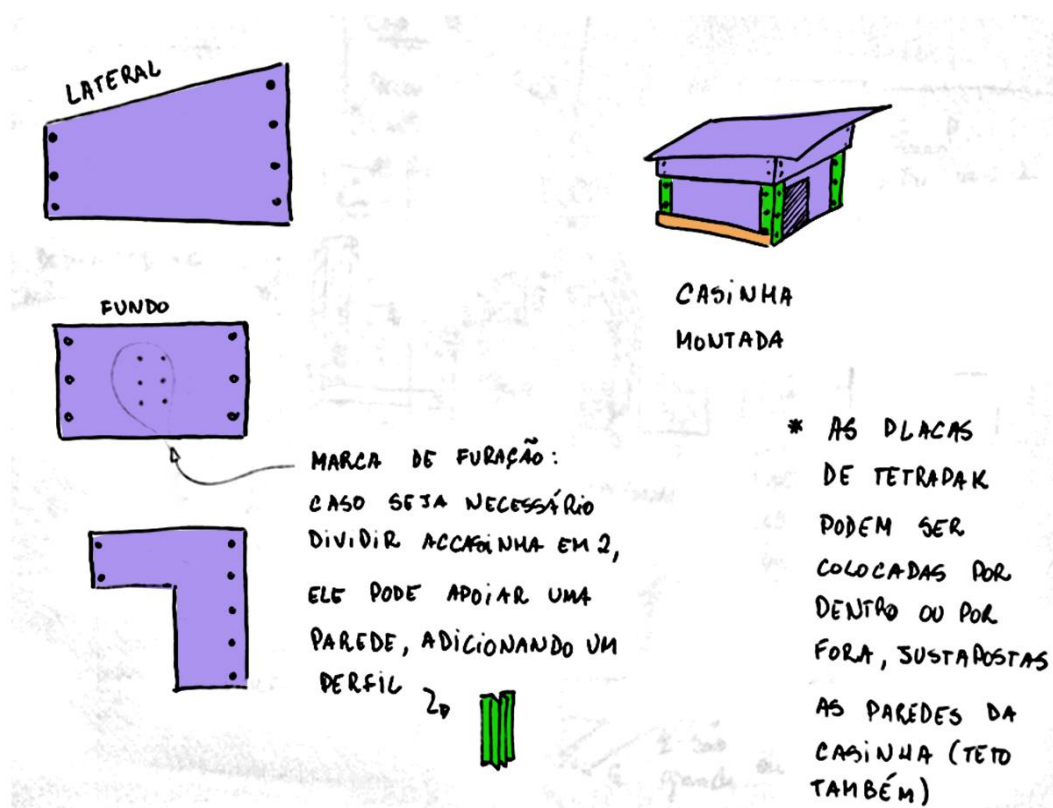 LATERAL
FUNDO
MARCA DE FURAÇÃO:
CASO SEJA NECESSÁRIO
DIVIDIR ACCASINHA EM 2,
ELE PODE APOIAR UMA
PAREDE, ADICIONANDO UM
PERFIL
CASINHA
MONTADA
* AS PLACAS
DE TETRAPAK
PODEM SER
COLOCADAS POR
DENTRO OU POR
FORA, JUSTAPOSTAS
AS PAREDES DA
CASINHA (TETO
TAMBÉM)